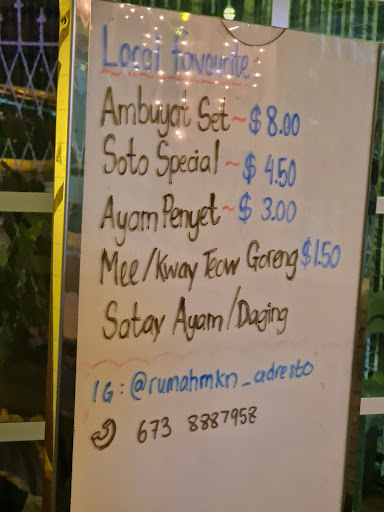 Local favourite:
Ambuyat Set ~ $8.00
Soto Special ~ $4.50
Ayam Penyet ~ $3.00
Mee/Kway Teow Goreng $1.50
Satay Ayam/Daging
IG: @rumahmkn_adresto
673 8887958